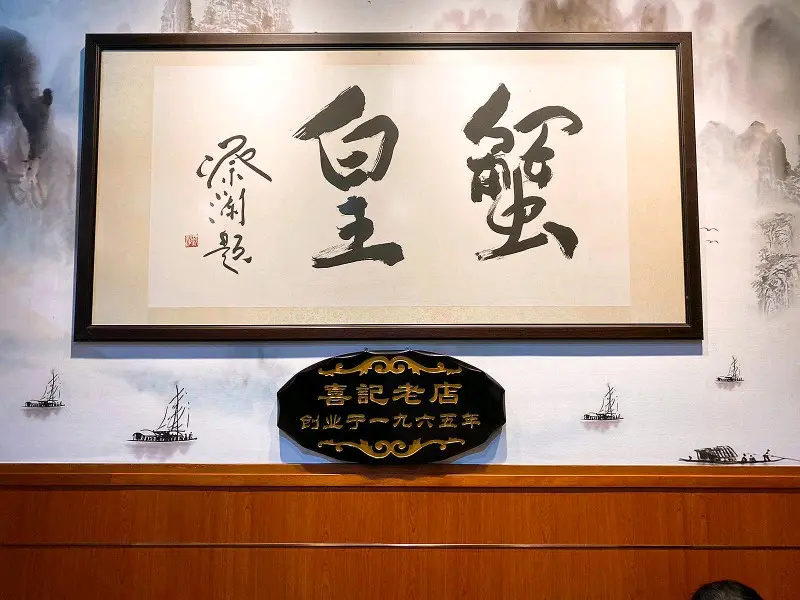 蟹皇
蔡澜题
喜記老店
创业于一九六五年